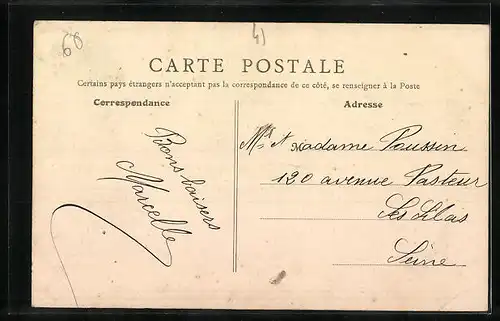 60
41
CARTE POSTALE
Certains pays étrangers n'acceptant pas la correspondance de ce côté, se renseigner à la Poste
Correspondance
Bons baisers
Marcelle
Adresse
Mr et Madame Poussin
120 avenue Pasteur
Les Lilas
Seine